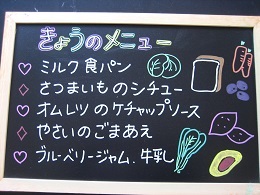 きょうのメニュー
ミルク食パン
さつまいものシチュー
オムレツのケチャップソース
やさいのごまあえ
ブルーベリージャム.牛乳